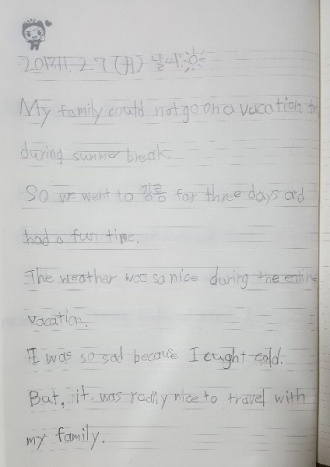 My family could not go on a vacation
during summer break.
So we went to 강릉 for three days and
had a fun time.
The weather was so nice during the entire
vacation.
It was so sad because I cught cold.
But, it was really nice to travel with
my family.